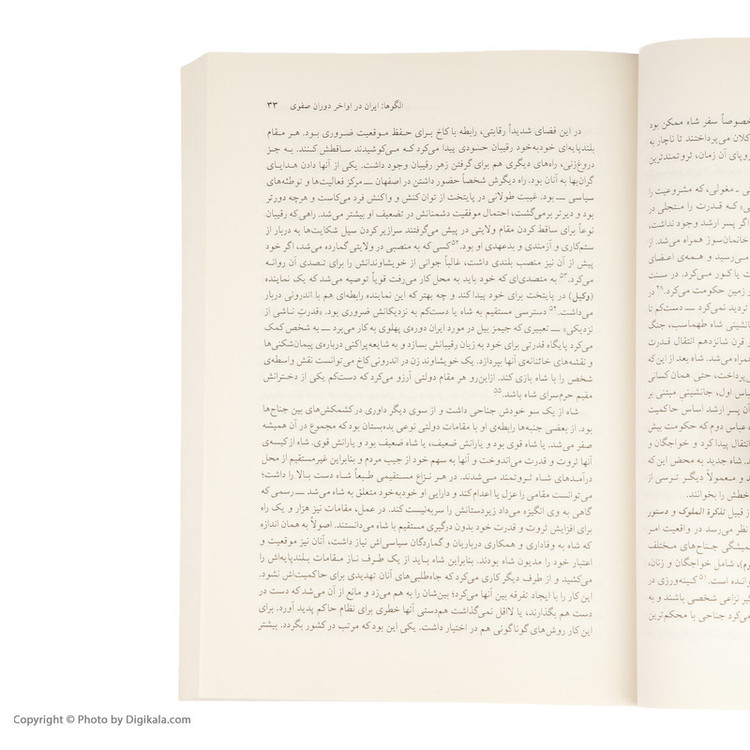 الگوها: ایران در اواخر دوران صفوی ۳۳
در این فضای شدیداً رقابتی، رابطه با کاخ برای حفظ موقعیت ضروری بود. هر مقام
بلندپایه‌ای خودبه‌خود رقیبان حسودی پیدا می‌کرد که می‌کوشیدند ساقطش کنند. به جز
دروغ‌زنی، راه‌های دیگری هم برای گرفتن زهر رقیبان وجود داشت. یکی از آنها دادن هدایای
گران‌بها به آنان بود. راه دیگرش شخصاً حضور داشتن در اصفهان ــ مرکز فعالیت‌ها و توطئه‌های
سیاسی ــ بود. غیبت طولانی در پایتخت از توان کنش و واکنش فرد می‌کاست و هرچه دورتر
بود و دیرتر برمی‌گشت، احتمال موفقیت دشمنانش در تضعیف او بیشتر می‌شد. راهی که رقیبان
نوعاً برای ساقط کردن مقام ولایتی در پیش می‌گرفتند سرازیر کردن سیل شکایت‌ها به دربار از
ستم‌کاری و آزمندی و بدعهدی او بود.۵۲ کسی که به منصبی در ولایتی گمارده می‌شد، اگر خود
پیش از آن نیز منصب بلندی داشت، غالباً جوانی از خویشاوندانش را برای تصدی آن روانه
می‌کرد.۵۳ به متصدی‌ای که خود باید به محل کار می‌رفت قویاً توصیه می‌شد که یک نماینده
(وکیل) در پایتخت برای خود پیدا کند و چه بهتر که این نماینده رابطه‌ای هم با اندرونی دربار
می‌داشت.۵۴ دسترسی مستقیم به شاه یا دست‌کم به نزدیکانش ضروری بود. «قدرتِ ناشی از
نزدیکی» ــ تعبیری که جیمز بیل در مورد ایران دوره‌ی پهلوی به کار می‌برد ــ به شخص کمک
می‌کرد پایگاه قدرتی برای خود به زیان رقیبانش بسازد و به شایعه‌پراکنی درباره‌ی پیمان‌شکنی‌ها
و نقشه‌های خائنانه‌ی آنها بپردازد. یک خویشاوند زن در اندرونی کاخ می‌توانست نقش واسطه‌ی
شخص را با شاه بازی کند. ازاین‌رو هر مقام دولتی آرزو می‌کرد که دست‌کم یکی از دخترانش
مقیم حرم‌سرای شاه باشد.۵۵
شاه از یک سو خودش جناحی داشت و از سوی دیگر داوری در کشمکش‌های بین جناح‌ها
بود. از بعضی جنبه‌ها رابطه‌ی او با مقامات دولتی نوعی بده‌بستان بود که مجموع در آن همیشه
صفر می‌شد. یا شاه قوی بود و یارانش ضعیف، یا شاه ضعیف بود و یارانش قوی. شاه از کیسه‌ی
آنها ثروت و قدرت می‌اندوخت و آنها به سهم خود از جیب مردم و بنابراین غیرمستقیم از محل
درآمدهای شاه ثروتمند می‌شدند. در هر نزاع مستقیمی طبعاً شاه دست بالا را داشت؛
می‌توانست مقامی را عزل یا اعدام کند و دارایی او خودبه‌خود متعلق به شاه می‌شد ــ رسمی که
گاهی به وی انگیزه می‌داد زیردستانش را سربه‌نیست کند. در عمل، مقامات نیز هزار و یک راه
برای افزایش ثروت و قدرت خود بدون درگیری مستقیم با شاه می‌دانستند. اصولاً به همان اندازه
که شاه به وفاداری و همکاری درباریان و گماردگان سیاسی‌اش نیاز داشت، آنان نیز موقعیت و
اعتبار خود را مدیون شاه بودند. بنابراین شاه باید از یک طرف ناز مقامات بلندپایه‌اش را
می‌کشید و از طرف دیگر کاری می‌کرد که جاه‌طلبی‌های آنان تهدیدی برای حاکمیت‌اش نشود.
این کار را با ایجاد تفرقه بین آنها می‌کرد؛ بین‌شان را به هم می‌زد و مانع از آن می‌شد که دست در
دست هم بگذارند، یا لااقل نمی‌گذاشت هم‌دستی آنها خطری برای نظام حاکم پدید آورد. برای
این کار روش‌های گوناگونی هم در اختیار داشت. یکی این بود که مرتب در کشور بگردد. بیشتر
خصوصاً سفر شاه ممکن بود
کلان می‌پرداختند تا ناچار به
روپای آن زمان، ثروتمندترین
ی ـ مغولی، که مشروعیت را
ی» که قدرت را متجلی در
اگر پسر ارشد وجود نداشت،
خانمان‌سوز همراه می‌شد. از
می‌رسید و همه‌ی اعضای
ت یا کور می‌کرد. در سنت
و زمین حکومت می‌کرد.۴۸ در
تردید نمی‌کرد ــ دست‌کم تا
جانشینی شاه طهماسب، جنگ
قرن شانزدهم انتقال قدرت
همراه می‌شد. شاه بعد از این که
ی‌پرداخت، حتی همان کسانی
باس اول، جانشینی مبتنی بر
آن پسر ارشد اساس حاکمیت
ه عباس دوم که حکومت بیش
انتقال پیدا کرد و خواجگان و
ند. شاه جدید به محض این که
د و معمولاً دیگر ترسی از
خطش را بخوانند.
ز قبیل تذکرة الملوک و دستور
نظر می‌رسد در واقعیت امر
همیشگی جناح‌های مختلف
وم)، شامل خواجگان و زنان،
وانده است.۵۱ کینه‌ورزی در
گیر نزاعی شخصی باشند و به
می‌کرد جناحی با محکم‌ترین
Copyright © Photo by Digikala.com